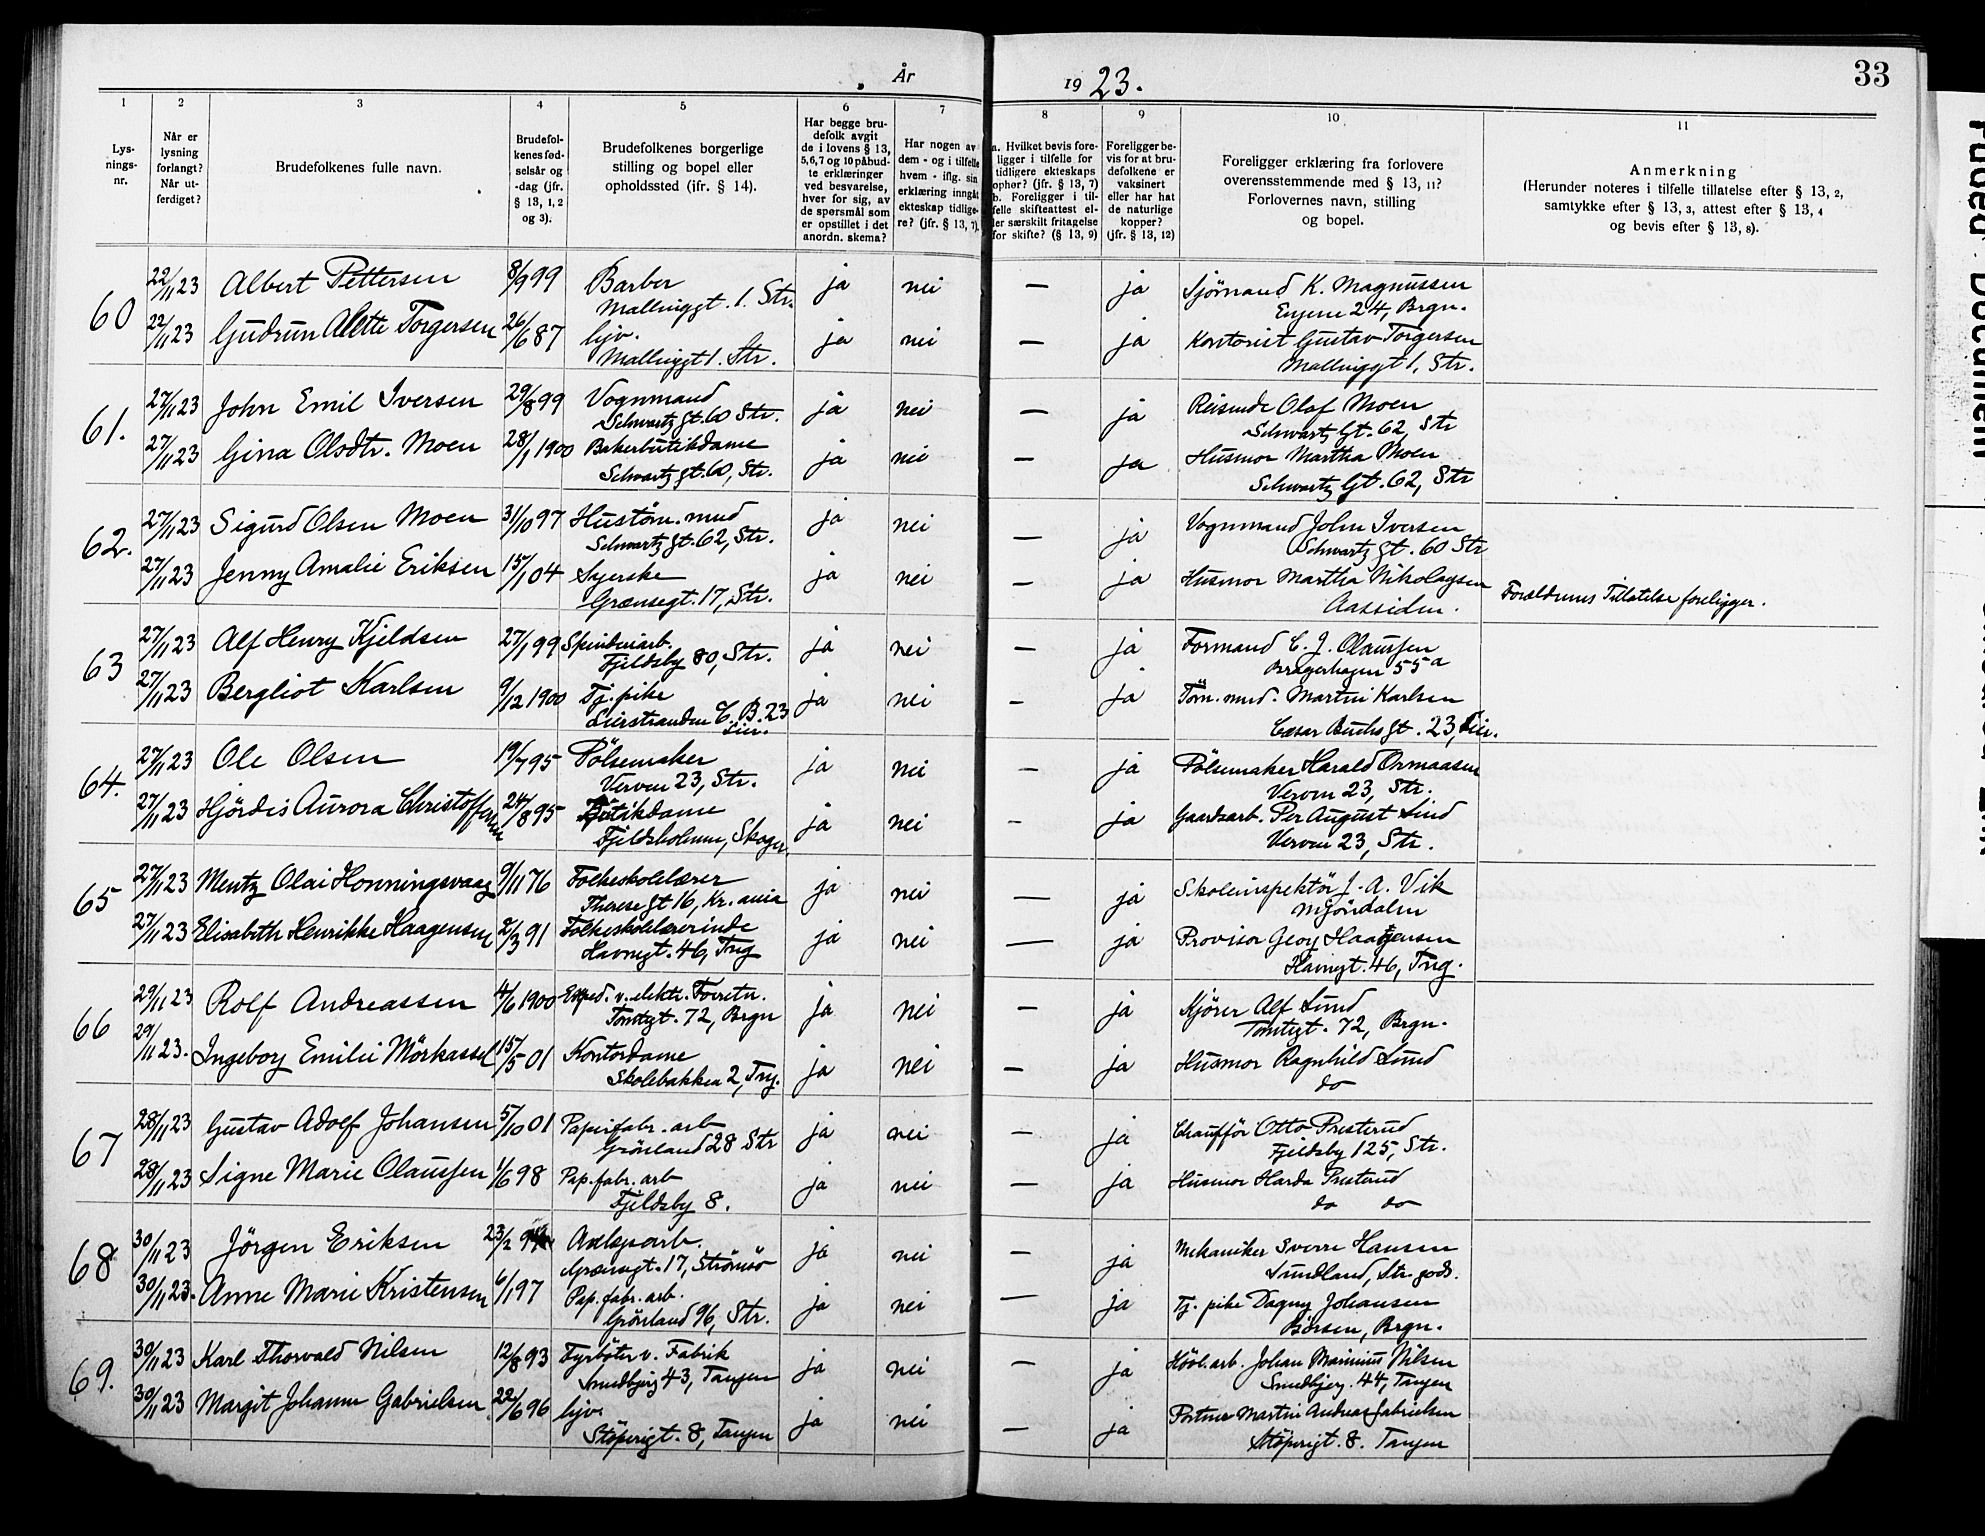 År 1923.
33
1 2 3 4 5 6 7 8 9 10 11
Lysningsnr.
Når er lysning forlangt? Når utferdiget?
Brudefolkenes fulle navn.
Brudefolkenes fødselsår og -dag (jfr. § 13, 1, 2 og 3).
Brudefolkenes borgerlige stilling og bopel eller opholdssted (jfr. § 14).
Har begge brudefolk avgit de i lovens § 13, 5,6,7 og 10 påbudte erklæringer ved besvarelse, hver for sig, av de spørsmål som er opstillet i det anordn. skema?
Har nogen av dem - og i tilfelle hvem - iflg. sin erklæring inngått ekteskap tidligere? (jfr. § 13, 7).
a. Hvilket bevis foreligger i tilfelle for tidligere ekteskaps ophør? (jfr. § 13, 7)
b. Foreligger i tilfelle skifteattest eller særskilt fritagelse for skifte? (§ 13, 9)
Foreligger bevis for at brudefolkene er vaksinert eller har hat de naturlige kopper? (jfr. § 13, 12)
Foreligger erklæring fra forlovere overensstemmende med § 13, 11?
Forlovernes navn, stilling og bopel.
Anmerkning
(Herunder noteres i tilfelle tillatelse efter § 13, 2, samtykke efter § 13, 3, attest efter § 13, 4 og bevis efter § 13, 8).
60 22/11 23 Albert Pettersen 8/9 99 Barber ja nei — ja Sjömand K. Magnussen
Mallinggt. 1. Str. Engene 24, Brgn.
22/11 23 Gudrun Alette Torgersen 26/6 87 hjv. ja nei — ja Kontorist Gustav Torgersen
Mallinggt 1. Str. Mallinggt 1, Str.
61. 27/11 23 John Emil Iversen 29/8 99 Vognmand ja nei — ja Reisende Olaf Moen
Schwartz gt. 60 Str. Schwartz Gt. 62, Str
27/11 23 Gina Olsdtr. Moen 28/1 1900 Bakerbutikdame ja nei — ja Husmor Martha Moen
Schwartz gt. 60, Str. Schwartz Gt. 62, Str
62. 27/11 23 Sigurd Olsen Moen 31/10 97 Hustöm.mud ja nei — ja Vognmand John Iversen
Schwartz gt. 62, Str. Schwartz gt. 60 Str
27/11 23 Jenny Amalie Eriksen 15/1 04 Syerske ja nei — ja Husmor Martha Nikolaysen Forældrenes Tillatelse foreligger.
Grænsegt. 17, Str. Aassiden.
63 27/11 23 Alf Henry Kjeldsen 27/1 99 Spinderiarb. ja nei — ja Formand C. J. Olaussen
Fjeldsby 80, Str. Bragerhagen 55a
27/11 23 Bergliot Karlsen 9/12 1900 Tj. pike ja nei - ja Töm. mud. Martin Karlsen
Lierstranden C. B. 23 Lier. Cæsar Buchs gt. 23, Lier.
64. 27/11 23 Ole Olsen 19/7 95 Pölsemaker ja nei — ja Pölsemaker Harald Ormaasen
Verven 23, Str. Verven 23, Str.
27/11 23 Hjördis Aurora Christoffersen 24/8 95 Butikdame ja nei - ja Gaardsarb. Per August Lind
Fjeldsholmen, Skoger. Verven 23, Str.
65 27/11 23 Mentz Olai Honningsvaag 9/11 76 Folkeskolelærer ja nei — ja Skoleinspektör J. A. Vik
Therese gt 16, Kr.ania Mjöndalen
27/11 23 Elisabeth Henrikke Haagensen 2/3 91 Folkeskolelærerinde ja nei — ja Provisor Georg Haagensen
Havnegt. 46, Tng Havnegt. 46, Tng.
66 29/11 23 Rolf Andreassen 4/6 1900 Exped. v. elektr. Forretn. ja nei — ja Kjörer Alf Lund
Tomtegt. 72, Brgn Tomtegt. 72, Brgn.
29/11 23. Ingeborg Emilie Mörkassel 15/5 01 Kontordame ja nei — ja Husmor Ragnhild Lund
Skolebakken 2, Tng. do
67 28/11 23 Gustav Adolf Johansen 5/10 01 Papirfabr. arb ja nei — ja Chaufför Otto Presterud
Grönland 28 Str Fjeldsby 125, Str.
28/11 23 Signe Marie Olaussen 1/6 98 Pap. fabr. arb ja nei — ja Husmor Harda Presterud
Fjeldsby 8. do do
68 30/11 23 Jörgen Eriksen 23/2 Anlægsarb. ja nei — ja Mekaniker Sverre Hansen
Grænsegt. 17, Strömsö Sundland, Str. gods.
30/11 23. Anne Marie Kristensen 6/1 97 Pap. fabr. arb. ja nei — ja Tj. pike Dagny Johansen
Grönland 96, Str. Börsen, Brgn.
69. 30/11 23 Karl Thorvald Nilsen 12/8 93 Fyrböter v. Fabrik ja nei — ja Hövl. arb. Johan Marinius Nilsen
Smedbjerg 43, Tangen Smedbjerg. 44, Tangen
30/11 23 Margit Johanne Gabrielsen 22/6 96 hjv. ja nei — ja Portner Martin Andreas Gabrielsen
Stöperigt. 8, Tangen Stöperigt. 8. Tangen